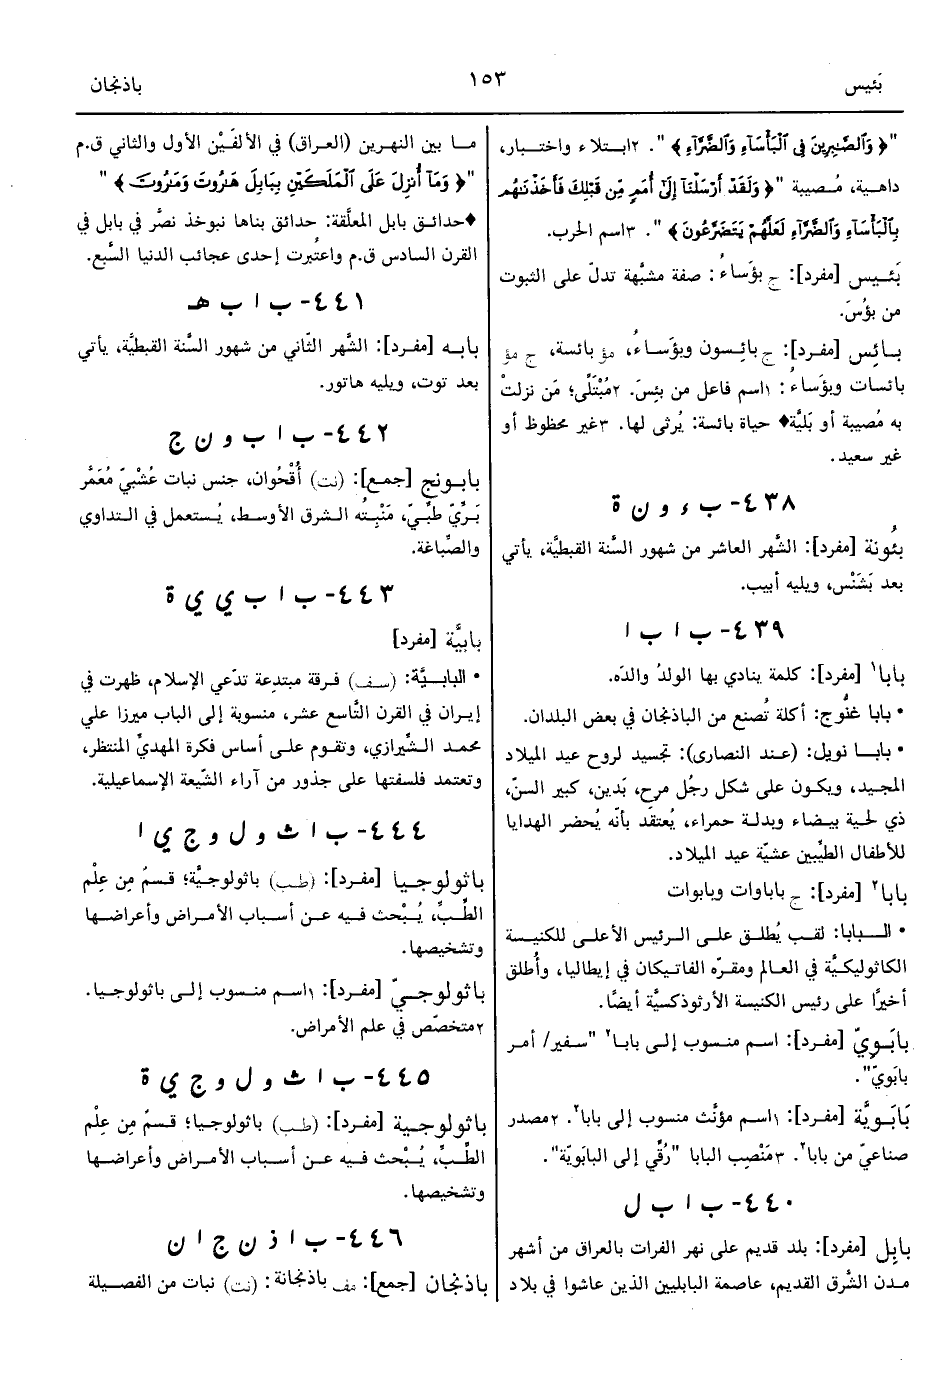 بَئيس
١٥٣
باذنجان
"﴿ وَٱلصَّٰبِرِينَ فِي ٱلْبَأْسَآءِ وَٱلضَّرَّآءِ ﴾". ٢ابتلاء واختبار،
داهية، مُصيبة "﴿ وَلَقَدْ أَرْسَلْنَآ إِلَىٰٓ أُمَمٍ مِّن قَبْلِكَ فَأَخَذْنَٰهُم
بِٱلْبَأْسَآءِ وَٱلضَّرَّآءِ لَعَلَّهُمْ يَتَضَرَّعُونَ ﴾". ٣اسم الحرب.
بَئـيس [مفرد]: ج بؤَساءُ: صفة مشبَّهة تدلّ على الثبوت
من بؤُسَ.
بـائس [مفرد]: ج بائسون وبؤَسـاءُ، مؤ بائسة، ج مؤ
بائسات وبؤَساءُ: ١اسم فاعل من بئِسَ. ٢مُبْتَلًى؛ مَن نزلتْ
به مُصيبة أو بَليَّة♦ حياة بائسة: يُرثى لها. ٣غير محظوظ أو
غير سعيد.
٤٣٨- ب ء و ن ة
بئُونة [مفرد]: الشَّهر العاشر من شهور السَّنة القبطيَّة، يأتي
بعد بَشَنْس، ويليه أبيب.
٤٣٩- ب ا ب ا
بابا١ [مفرد]: كلمة ينادي بها الولدُ والدَه.
• بابا غنُّوج: أكلة تُصنع من الباذنجان في بعض البلدان.
• بابـا نويل: (عـند النصارى): تجسيد لروح عيد الميلاد
المجيد، ويكون على شكل رجُل مرح، بَدين، كبير السنّ،
ذي لحية بيضاء وبدلة حمراء، يُعتقَد بأنّه يُحضر الهدايا
للأطفال الطيِّبين عشيَّة عيد الميلاد.
بابا٢ [مفرد]: ج باباوات وبابوات
• الـبابا: لقب يُطلق على الـرئيس الأعـلى للكنيسة
الكاثوليكيَّة في العالم ومقرّه الفاتيكان في إيطاليا، وأُطلق
أخيرًا على رئيس الكنيسة الأرثوذكسيَّة أيضًا.
بابَـوِيّ [مفرد]: اسم منسوب إلـى بابـا٢ "سـفير/ أمـر
بابَويّ".
بَابَويَّة [مفرد]: ١اسم مؤنَّث منسوب إلى بابا٢. ٢مصدر
صناعيّ من بابا٢. ٣مَنْصِب البابا "رُقِّي إلى البابَويَّة".
٤٤٠- ب ا ب ل
بابِل [مفرد]: بلد قديم على نهر الفرات بالعراق من أشهر
مدن الشَّرق القديم، عاصمة البابليين الذين عاشوا في بلاد
مـا بين النهـرين (العراق) في الألفَيْن الأول والثاني ق.م
"﴿ وَمَآ أُنزِلَ عَلَى ٱلْمَلَكَيْنِ بِبَابِلَ هَٰرُوتَ وَمَٰرُوتَ ﴾"
♦حدائـق بابل المعلَّقة: حدائق بناها نبوخذ نصَّر في بابل في
القرن السادس ق.م واعتُبرت إحدى عجائب الدنيا السَّبع.
٤٤١- ب ا ب هـ
بابـه [مفـرد]: الشَّهر الثّاني من شهور السَّنة القبطيَّة، يأتي
بعد توت، ويليه هاتور.
٤٤٢- ب ا ب و ن ج
بابـونج [جمع]: (نت) أُقْحُوان، جنس نبات عُشْبيّ مُعَمَّر
بَـرِّيّ طبِّـيّ، مَنْبِـتُه الـشرق الأوسـط، يُستعمل في التداوي
والصِّباغة.
٤٤٣- ب ا ب ي ي ة
بابِيَّة [مفرد]
• البابـيَّة: (سـف) فـرقة مبتدعة تدّعي الإسلام، ظهرت في
إيـران في القرن التَّاسع عشر، منسوبة إلى الباب ميرزا علي
محمـد الـشِّيرازي، وتقوم علـى أساس فكرة المهديّ المنتظر،
وتعتمد فلسفتها على جذور من آراء الشّيعة الإسماعيلية.
٤٤٤- ب ا ث و ل و ج ي ا
باثولوجـيا [مفـرد]: (طـب) باثولوجيَّة؛ قـسمٌ مِن عِلْم
الطِّـبِّ، يُـبْحث فـيه عـن أسـباب الأمـراض وأعراضـها
وتشخيصها.
باثولوجـيّ [مفرد]: ١اسم منـسوب إلـى باثولوجـيا.
٢متخصّص في علم الأمراض.
٤٤٥- ب ا ث و ل و ج ي ة
باثولوجـية [مفـرد]: (طـب) باثولوجـيا؛ قسمٌ مِن عِلْم
الطِّـبِّ، يُـبْحث فـيه عـن أسـباب الأمـراض وأعراضـها
وتشخيصها.
٤٤٦- ب ا ذ ن ج ا ن
باذنجان [جمع]: مف باذنجانة: (نت) نبات من الفصيلة